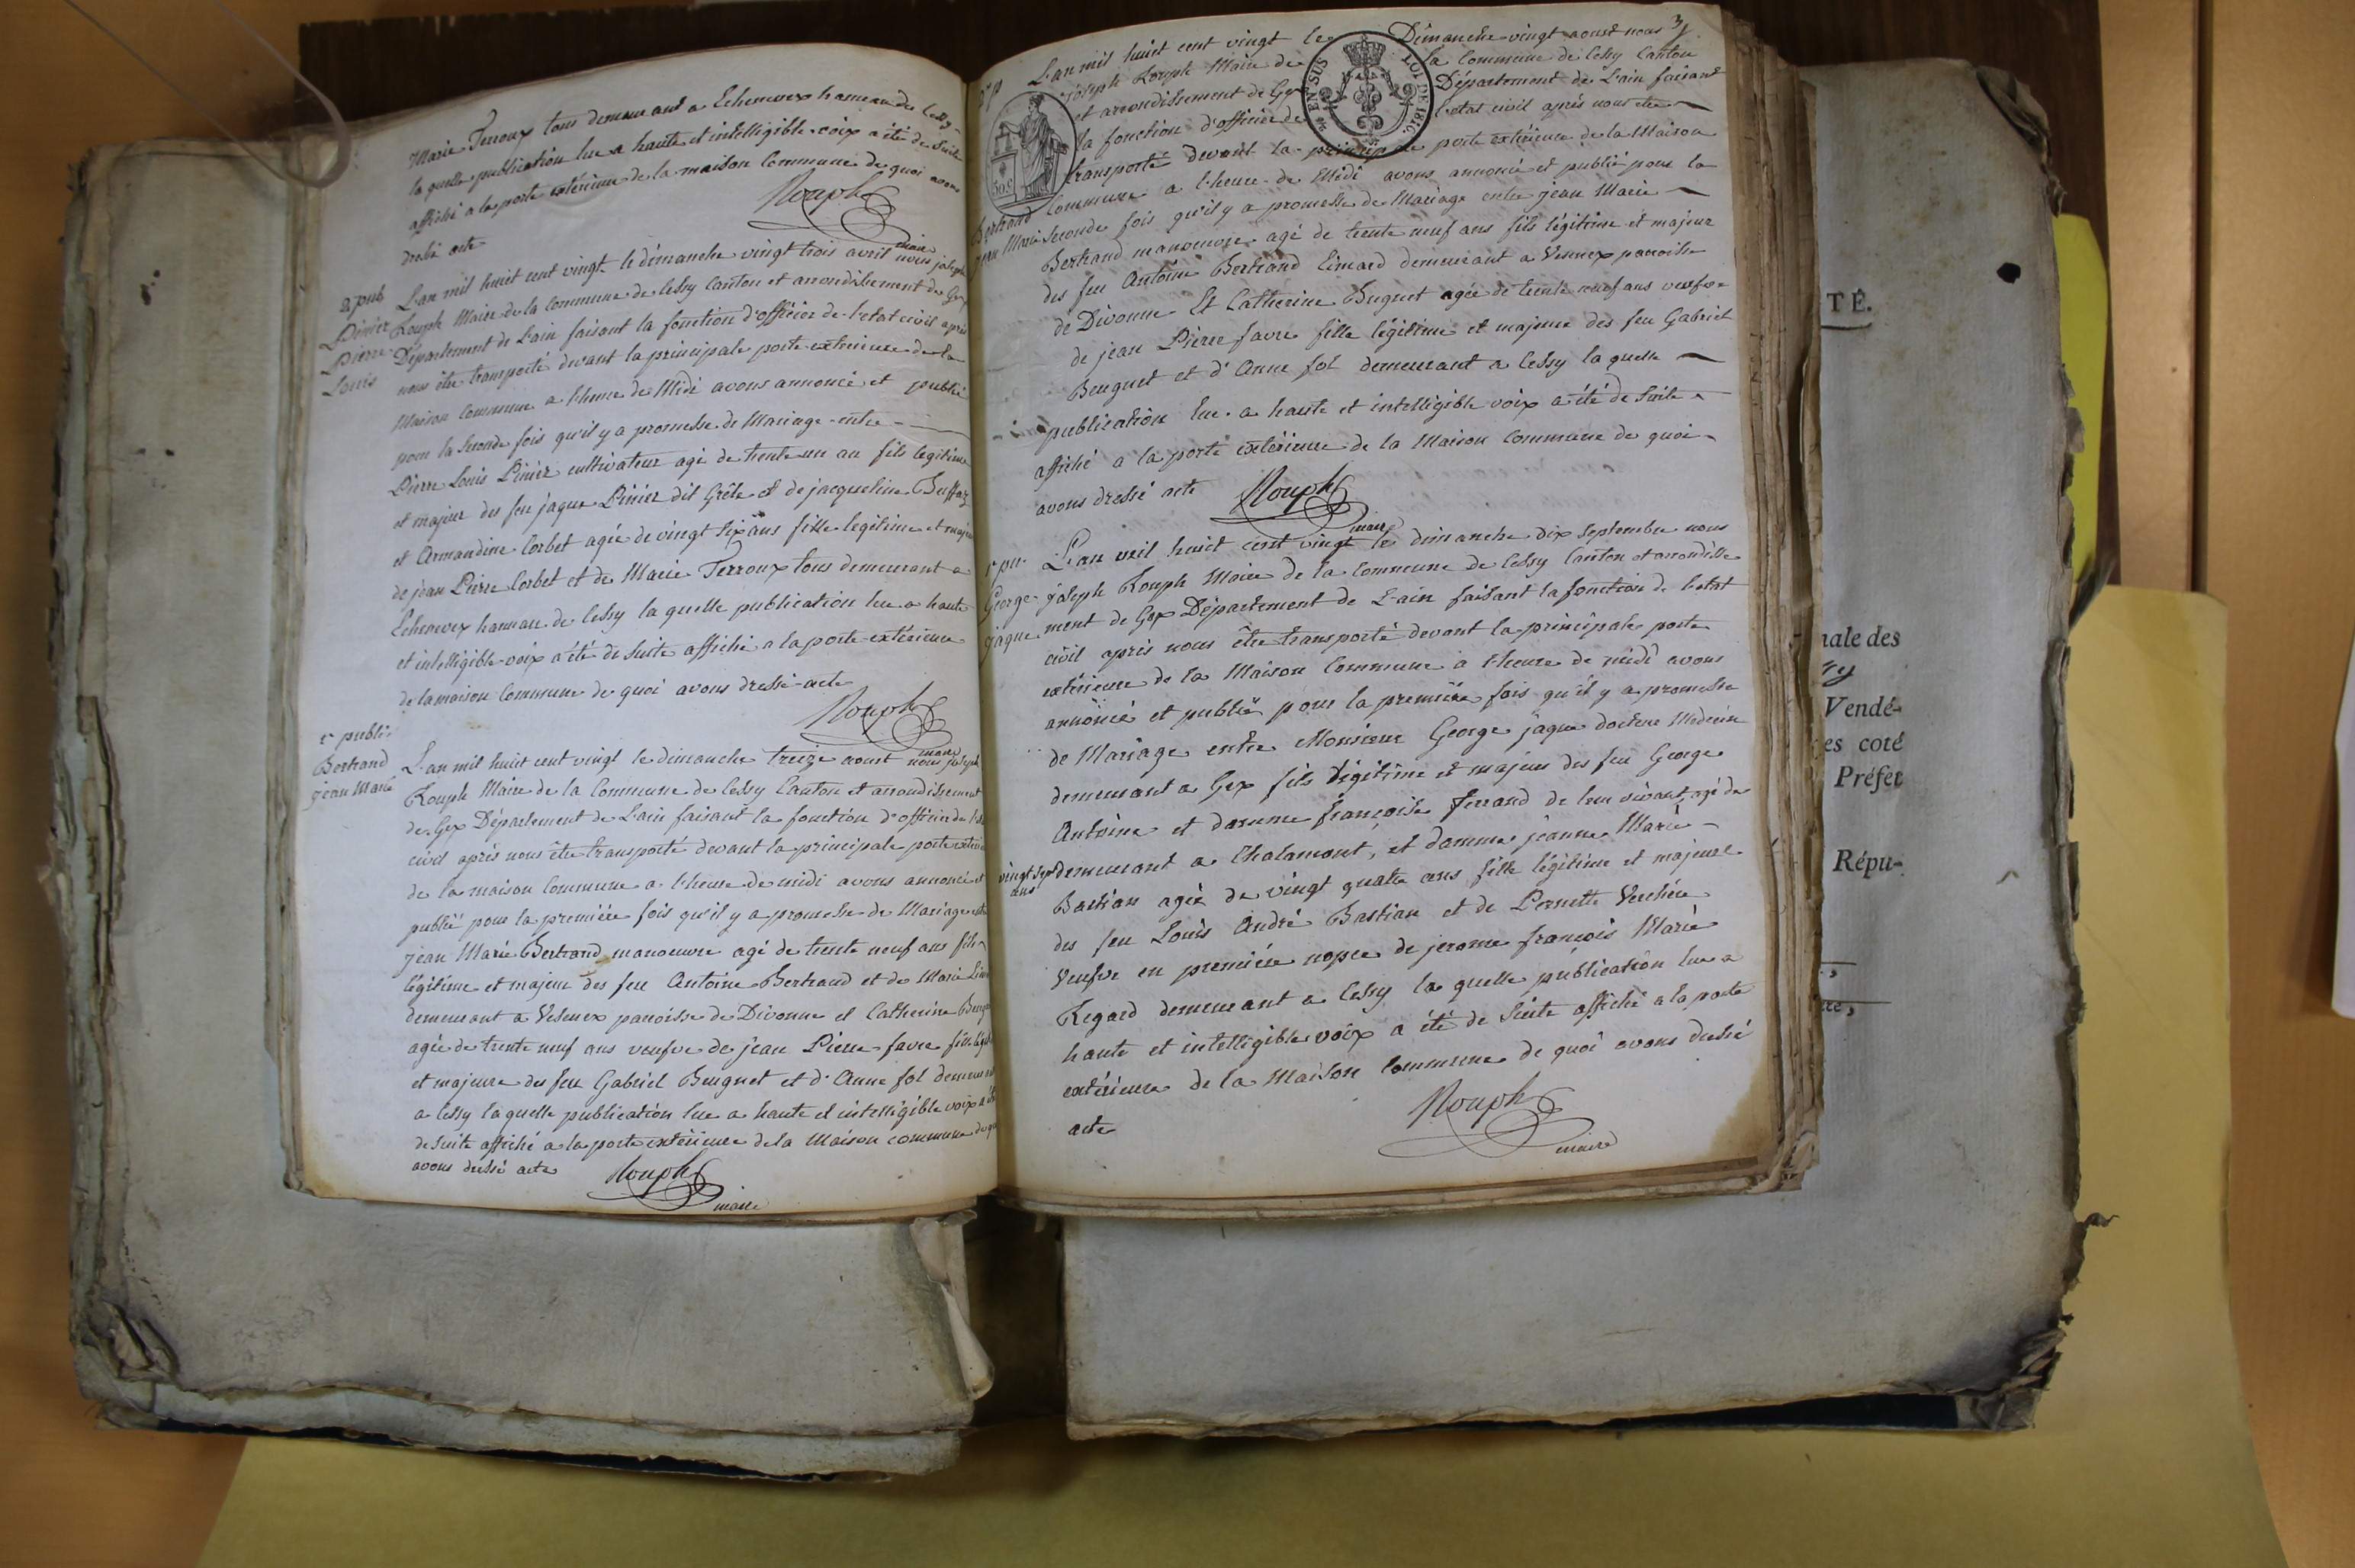 Marie Terroux tous demeurant a Echenevex hameau de Cessy
la quelle publication lue a haute et intelligible voix a été de suite
affiché a la porte extérieure de la maison Commune de quoi avons
dressé acte
Rouph
maire
2e pub
Pinier
Pierre
Louis
L'an mil huict cent vingt le dimanche vingt trois avril nous joseph
Rouph Maire de la Commune de Cessy Canton et arrondissement de Gex
Département de L'ain faisant la fonction d'officier de l'etat civil après
nous être transporté devant la principale porte exterieure de la
Maison Commune a l'heure de Midi avons annoncé et publié
pour la seconde fois qu'il y a promesse de Mariage entre
Pierre Louis Pinier cultivateur agé de trente un an fils legitime
et majeur des feu jaque Pinier dit Grèle et de jacqueline Buffaz
et Armandine Corbet agée de vingt six ans fille legitime et maje
de jean Pierre Corbet et de Marie Terroux tous demeurant a
Echenevex hameau de Cessy la quelle publication lue a haute
et intelligible voix a été de suite affiché a la porte extérieure
de la maison Commune de quoi avons dressé acte
Rouph
maire
1e publi
Bertrand
jean Marie
L'an mil huict cent vingt le dimanche treize aoust nous joseph
Rouph Maire de la Commune de Cessy Canton et arrondissement
de Gex Département de L'ain faisant la fonction d'officier de l'et
civil après nous être transporté devant la principale porte exterie
de la maison Commune a l'heure de midi avons annoncé et
publié pour la première fois qu'il y a promesse de Mariage entre
jean Marie Bertrand manoeuvre agé de trente neuf ans fils
légitime et majeur des feu Antoine Bertrand et de Marie Lim
demeurant a Vesenex paroisse de Divonne et Catherine Bug
agée de trente neuf ans veufve de jean Pierre favre fille légit
et majeure des feu Gabriel Buguet et d'Anne fol demeurant
a Cessy la quelle publication lue a haute et intelligible voix a été
de suite affiché a la porte extérieure de la Maison commune de quoi
avons dressé acte
Rouph
maire
3
2e p
Bertrand
jean Marie
L'an mil huict cent vingt le Dimanche vingt aoust nous
joseph Rouph Maire de la Commune de Cessy Canton
et arrondissement de Gex Département de L'ain faisant
la fonction d'officier de l'etat civil après nous être
transporté devant la principale porte extérieure de la Maison
Commune a l'heure de Midi avons annoncé et publié pour la
seconde fois qu'il y a promesse de Mariage entre jean Marie
Bertrand manoeuvre agé de trente neuf ans fils légitime et majeur
des feu Antoine Bertrand Limard demeurant a Vesenex paroisse
de Divonne Et Catherine Buguet agée de trente neuf ans veufve
de jean Pierre favre fille légitime et majeure des feu Gabriel
Beuguet et d'Anne fol demeurant a Cessy la quelle
publication lue a haute et intelligible voix a été de suite
affiché a la porte extérieure de la Maison Commune de quoi
avons dressé acte
Rouph
maire
EN SUS LOI DE 1816
50 c
1e pu
George
jaque
L'an mil huict cent vingt le dimanche dix septembre nous
joseph Rouph Maire de la Commune de Cessy Canton et arrondisse
ment de Gex Département de L'ain faisant la fonction de l'etat
civil après nous être transporté devant la principale porte
extérieure de la Maison Commune a l'heure de midi avons
annoncé et publié pour la première fois qu'il y a promesse
de Mariage entre Monsieur George jaque docteur Medecin
demeurant a Gex fils légitime et majeur des feu George
Antoine et damme françoise ferrand de leur vivant, agé de
vingt sept
ans
demeurant a Chalamont, et damme jeanne Marie
Bastian agée de vingt quatre ans fille légitime et majeure
des feu Louis André Bastian et de Pernette Verchère
Veufve en première nopce de jerome françois Marie
Regard demeurant a Cessy la quelle publication lue a
haute et intelligible voix a été de suite affiché a la porte
extérieure de la Maison Commune de quoi avons dressé
acte
Rouph
maire
TÉ.
nale des
Vendé-
es coté
Préfet
Répu-